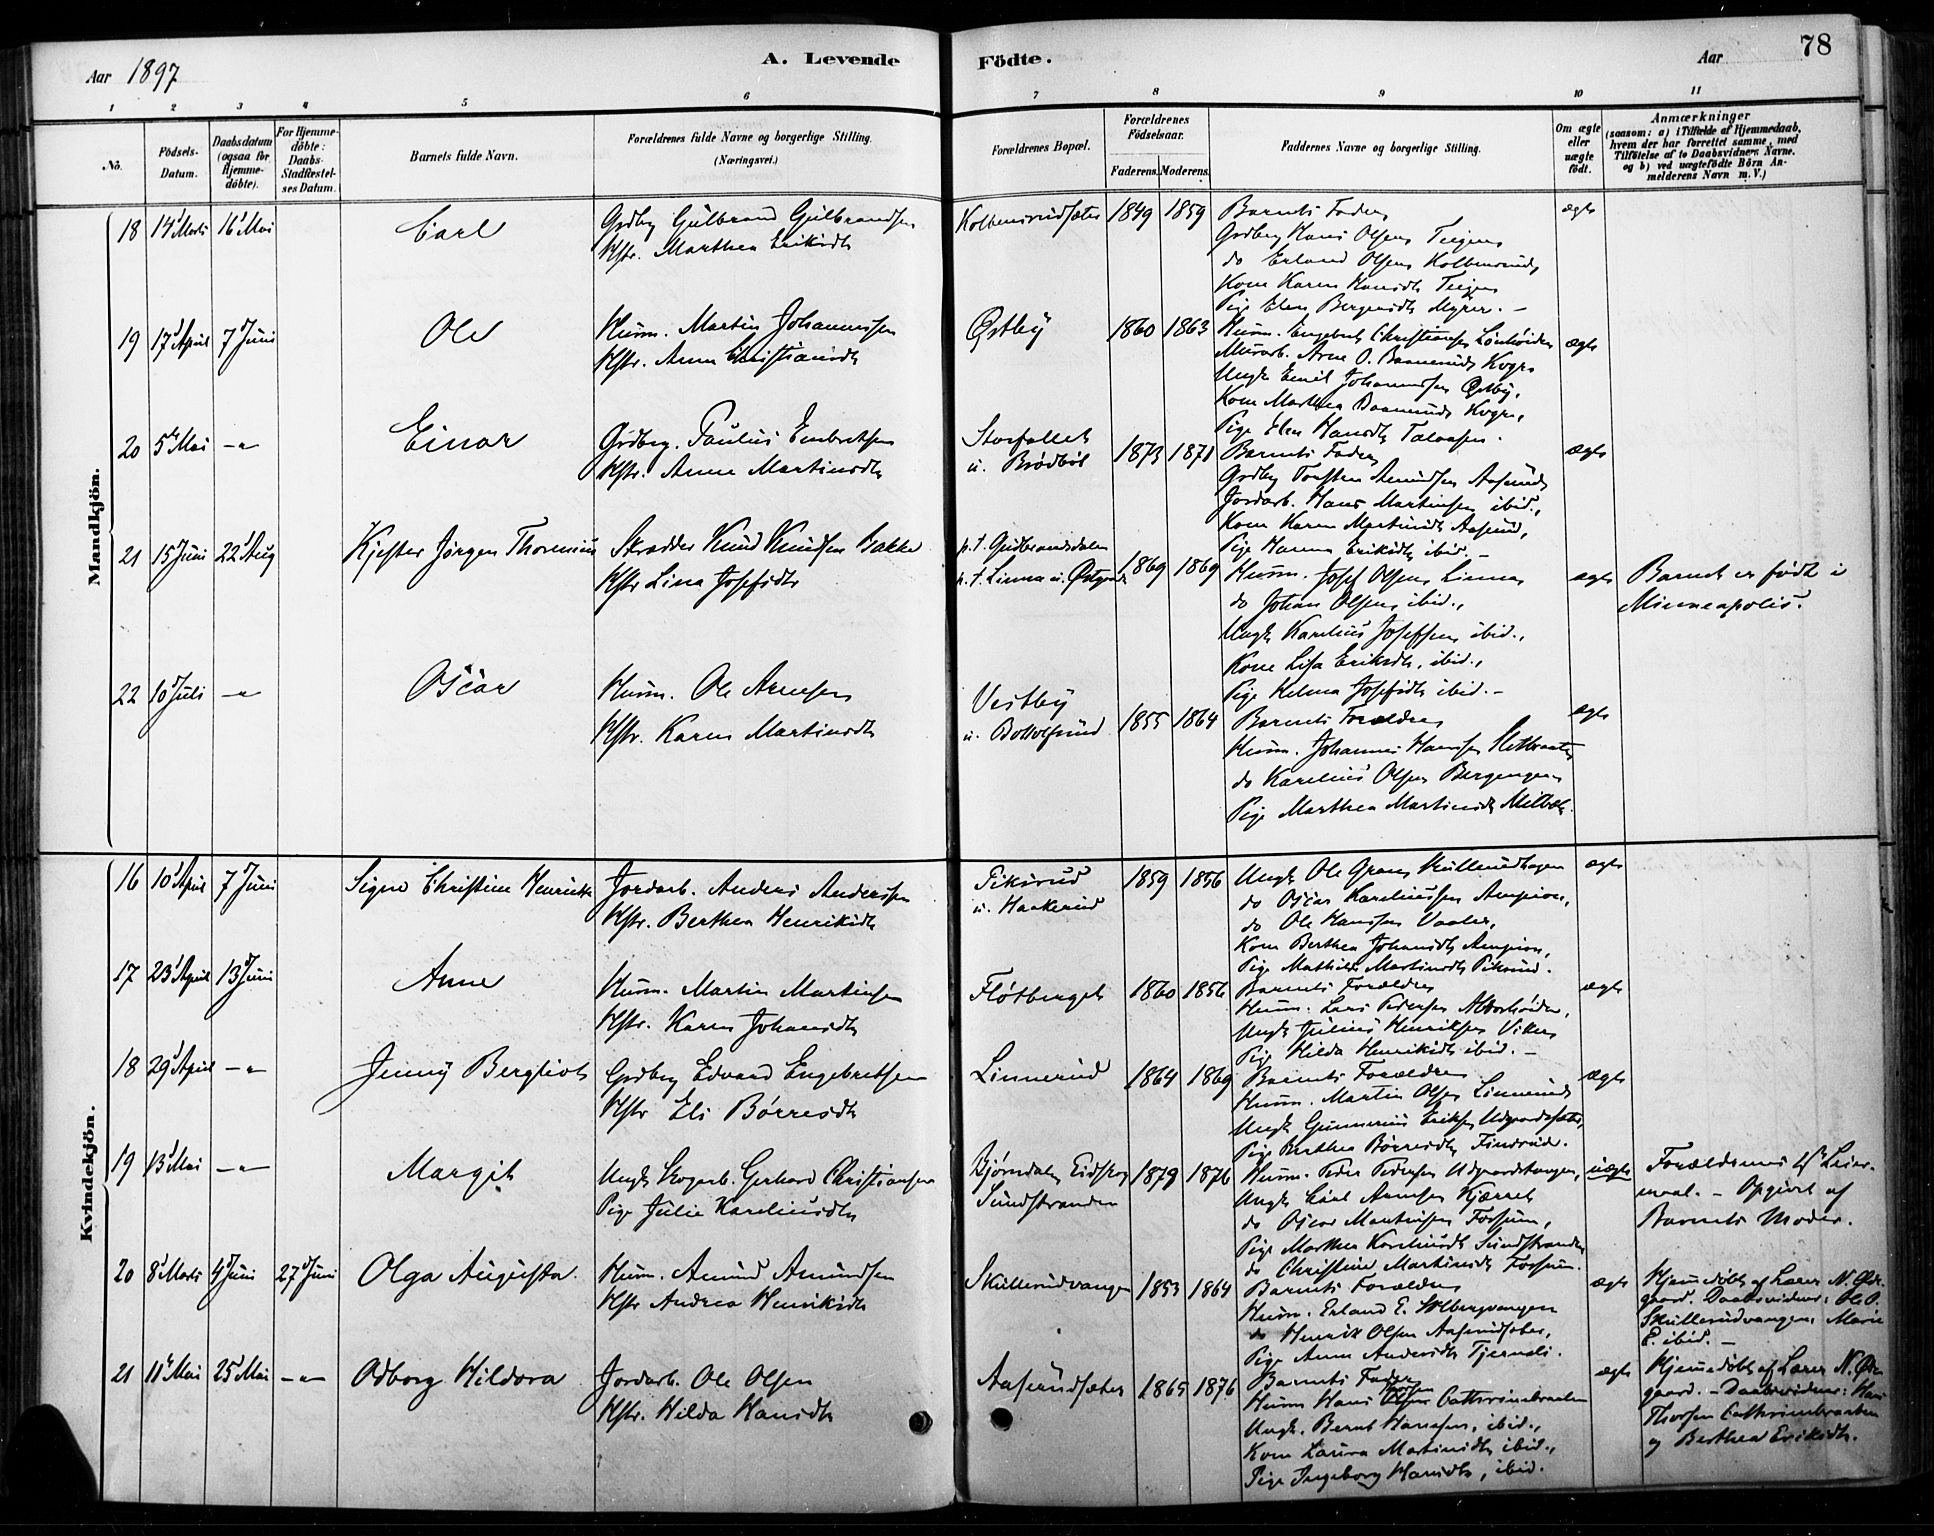 Aar 1897
A. Levende
Födte.
Aar
78
1 2 3 4 5 6 7 8 9 10 11
No.
Födsels-Datum.
Daabsdatum (ogsaa for Hjemme-döbte).
For Hjemme-döbte: Daabs-Stadfæstel-ses Datum.
Barnets fulde Navn.
Forældrenes fulde Navne og borgerlige Stilling. (Næringsvei.)
Forældrenes Bopæl.
Forældrenes Födselsaar.
Faderens. Moderens.
Faddernes Navne og borgerlige Stilling.
Om ægte eller uægte födt.
Anmærkninger
(saasom: a) i Tilfælde af Hjemmedaab, hvem der har forrettet samme, med Tilföielse af to Daabsvidners Navne, og b) ved uægtefödte Börn An-melderens Navn m. V.)
Mandkjön.
18 14 Marts 16 Mai
Carl
Grdbrg Gulbrand Gulbrandsen
Hstr. Marthea Eriksdtr
Kolbensrudsæter
1849 1859
Barnets Fader,
Grdbrg Hans Olsen Teigen
do Erland Olsen Kolbensrud,
Kone Karen Hansdtr Teigen
Pige Elen Bergersdtr Myrer. -
ægte
19 17 April 7 Juni
Ole
Husm. Martin Johannessen
Hstr. Anne Christiansdtr
Østby
1860 1863
Husm. Engebret Christiansen
Murarb. Arne O. Baanerud, Kogre
Ungk Emil Johannessen Østby,
Kone Marthea Baanerud, Kogre,
Pige Elen Hansdtr Talaasen.
ægte
20 5 Mai -"-
Einar
Grdbrg. Paulus Embretsen
Hstr. Anne Martinsdtr
Storfallet
u. Brødbøl
1873 1871
Barnets Fader
Grdbrg Torsten Amundsen Aaserud,
Jordarb. Hans Martinsen ibid.,
Kone Karen Martinsdtr Aaserud,
Pige Hanna Eriksdtr ibid. -
ægte
21 15 Juni 22 Aug
Kjester Jørgen Thorenius
Skrædder Knud Knudsen Bakke
Hstr Lina Josefsdtr
p.t. Gudbrandsdalen
p.t. Linna u. Østgaard
1869 1869
Husm. Josef Olsen Linna
do Johan Olsen, ibid.,
Ungk Karelius Josefsen ibid.,
Kone Lisa Eriksdtr, ibid.,
Pige Helma Josefsdtr ibid. -
ægte
Barnet er født i
Minneapolis.
22 10 Juli -"-
Oscar
Husm. Ole Arnesen
Hstr. Karen Martinsdtr
Vestby
u. Bottolfsrud
1855 1864
Barnets Forældre
Husm. Johannes Hansen
do Karelius Olsen Bergengen
Pige Marthea Martinsdtr
ægte
Kvindekjön.
16 10 April 7 Juni
Signe Christine Henriette
Jordarb. Anders Anderssen
Hstr. Berthea Henriksdtr
Piksrud
u. Haakerud
1859 1856
Ungk Ole Gran, Skullerudhagen
do Oscar Kareliussen Ampion,
do Ole Hanssen Vaaler,
Kone Berthea Johansdtr Ampion,
Pige Mathilde Martinsdtr Piksrud.
ægte
17 23 April 13 Juni
Anne
Husm. Martin Martinsen
Hstr. Karen Johansdtr
Fløtberget
1860 1856
Barnets Forældre
Husm. Lars Pedersen
Ungk Julius Henriksen Viker
Pige Hilda Henriksdtr ibid. -
ægte
18 29 April -"-
Jenny Bergliot
Grdbrg Edvard Engebretsen
Hstr Eli Børresdtr
Linnerud
1864 1869
Barnets Forældre
Husm. Martin Olsen Linnerud
Ungk Gunnerius Eriksen Udgaardsæter,
Pige Berthea Børresdtr Finsrud.
ægte
19 13 Mai -"-
Margit
Ungk Skogarb. Gerhard Christiansen
Pige Julie Kareliusdtr
Bjørndalen Eidskog
Sundstranden
1879 1876
Husm. Peder Pedersen Udgaardstangen,
Ungk Carl Arnesen Kjærret
do Oscar Martinsen Fossum,
Pige Marthea Kareliusdtr Sundstranden
do Christine Martinsdtr Fossum.
uægte
Forældrenes 1ste Leier-
maal. - Opgivet af
Barnets Moder.
20 8 Marts 4 Juni 27 Juni
Olga Augusta
Husm. Amund Amundsen
Hstr Andrea Henriksdtr
Skullerudvangen
1853 1864
Barnets Forældre
Husm. Erland E. Solbergvangen
do Henrik Olsen Aaserudsæter,
Pige Anne Andersdtr Tjernsli.
ægte
Hjemmedøbt af Lærer N. Øde-
gaard. Daabsvidner: Ole O.
Skullerudvangen, Marie
E. ibid. -
21 11 Mai 25 Mai -"-
Odborg Hildora
Jordarb. Ole Olsen
Hstr. Hilda Hansdtr
Aaserudsæter
1865 1876
Barnets Fader
Husm Hans Thorsen Cathrinebraaten
Ungk. Bernt Hanssen, ibid.,
Kone Laura Martinsdtr ibid.,
Pige Ingeborg Hansdtr, ibid.
ægte
Hjemmedøbt af Lærer N. Øde-
gaard. - Daabsvidner: Hans
Thorsen Cathrinebraaten
og Berthea Eriksdtr.